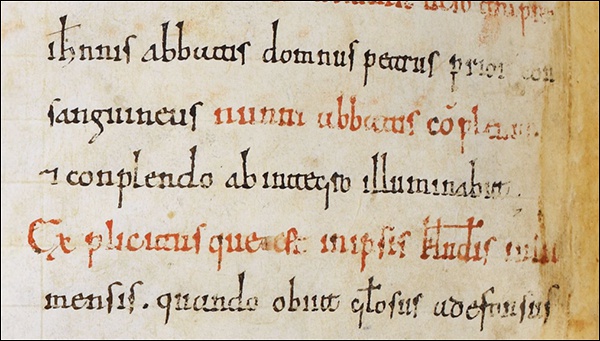 ihnnis abbatis domnus petrus prior con
sanguineus nunni abbatis cōpleuit.
⁊ conplendo ab integro illuminabit.
Explicitusque est in ipsis klndis iulii
mensis. quando obiit glosus adefonsus